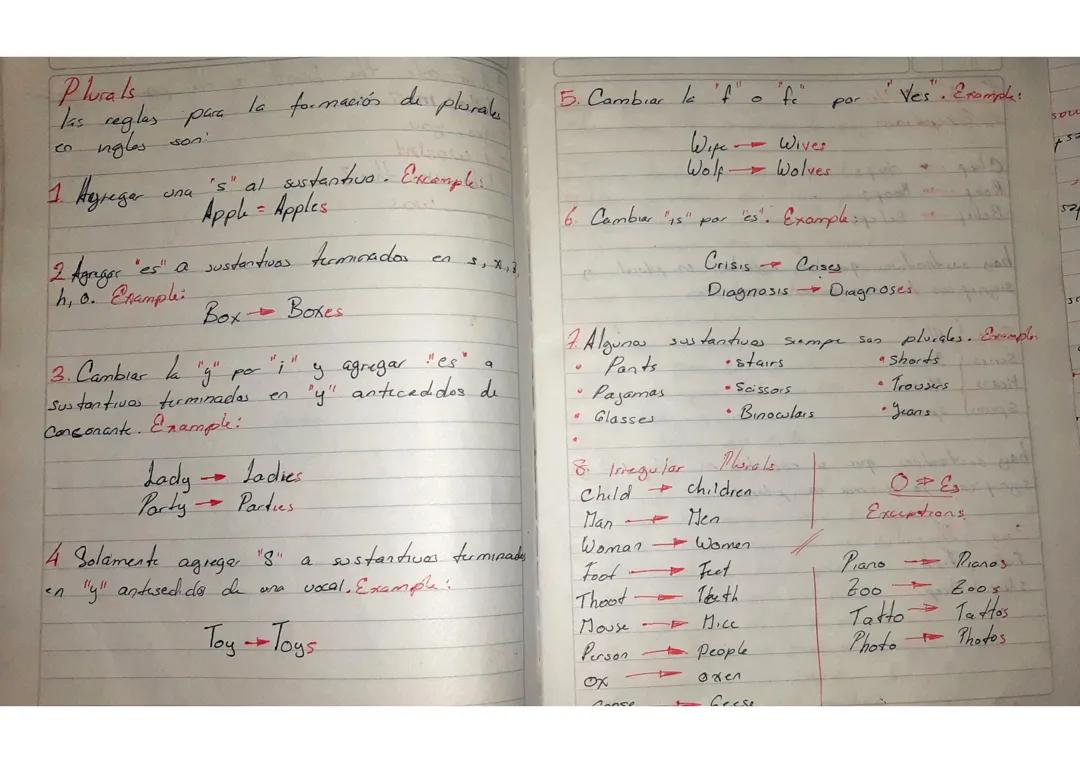 Plurals
las reglas para la formación de plurales
en ingles son:
1. Agregar una "s" al sustantivo. Example:
Apple = Apples
2. Agregar "es" a sustantivos terminados en s, x, z,
h, o. Example:
Box → Boxes
3. Cambiar la "y" por "i" y agregar "es" a
sustantivos terminados en "y" antecedidos de
consonante. Example:
Lady → Ladies
Party → Parties
4 Solamente agregar "s" a sustantivos terminados
en "y" antesedidos de una vocal. Example:
Toy → Toys
5. Cambiar la "f" o "fe" por "Ves". Example:
Wife → Wives
Wolf → Wolves
6. Cambiar "is" por "es". Example:
Crisis → Crises
Diagnosis → Diagnoses
7. Algunos sustantivos siempre son plurales. Example:
• Pants • stairs • shorts
• Pajamas • Scissors • Trousers
• Glasses • Binoculars • Jeans
•
8. Irregular Plurals
Child → children
Man → Men
Woman → Women
Foot → Feet
Thoot → Teeth
Mouse → Mice
Person → People
Ox → oxen
Goose → Geese
O → Es
Exceptions
Piano → Pianos
Zoo → Zoos
Tatto → Tattos
Photo → Photos